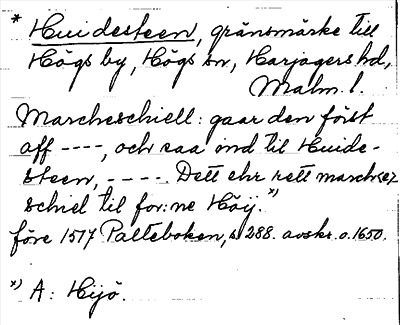 * Huidesteen, gränsmärke till
Högs by, Högs sn, Harjagers hd,
Malm. l.
Marcheschiell: gaar den först
aff ----, och saa ind til Huide-
steen, ----. Dett ehr rett marchsez
schiel til for:ne Höÿ. x)
före 1517 Palteboken, s 288. avskr. o. 1650.
x) A: Hijö.